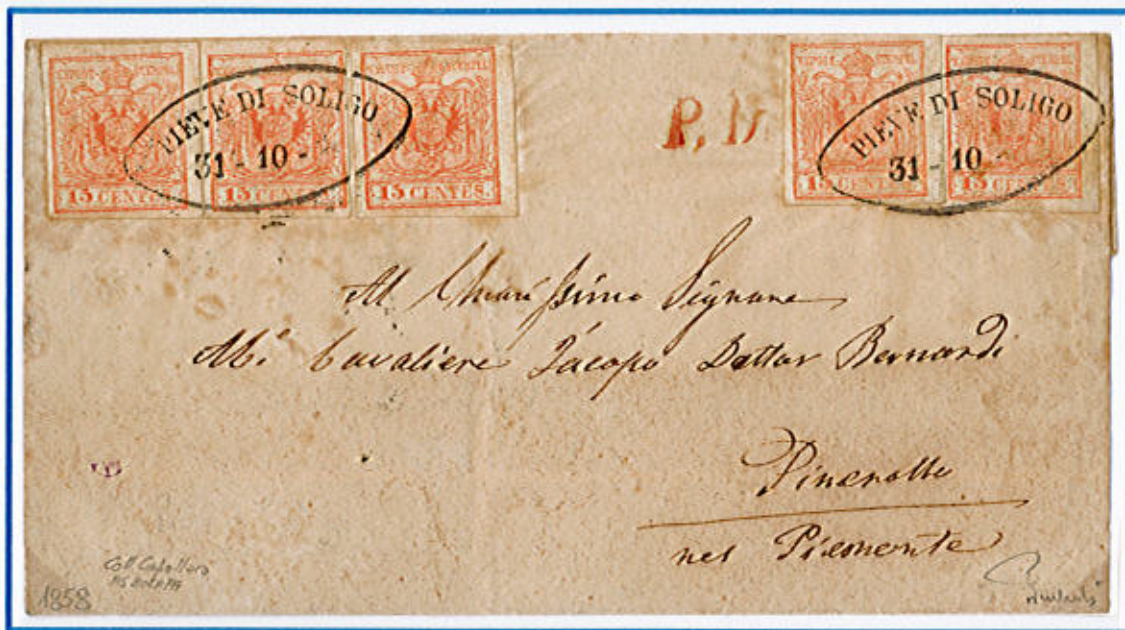 15 CENTES. 15 CENTES. 15 CENTES.
PIEVE DI SOLIGO
31 - 10 -
P. D
15 CENTES. 15 CENTES.
PIEVE DI SOLIGO
31 - 10 -
Al Chiarissimo Signore
Cavaliere Jacopo Dottor Bernardi
Pinerollo
nel Piemonte
1858